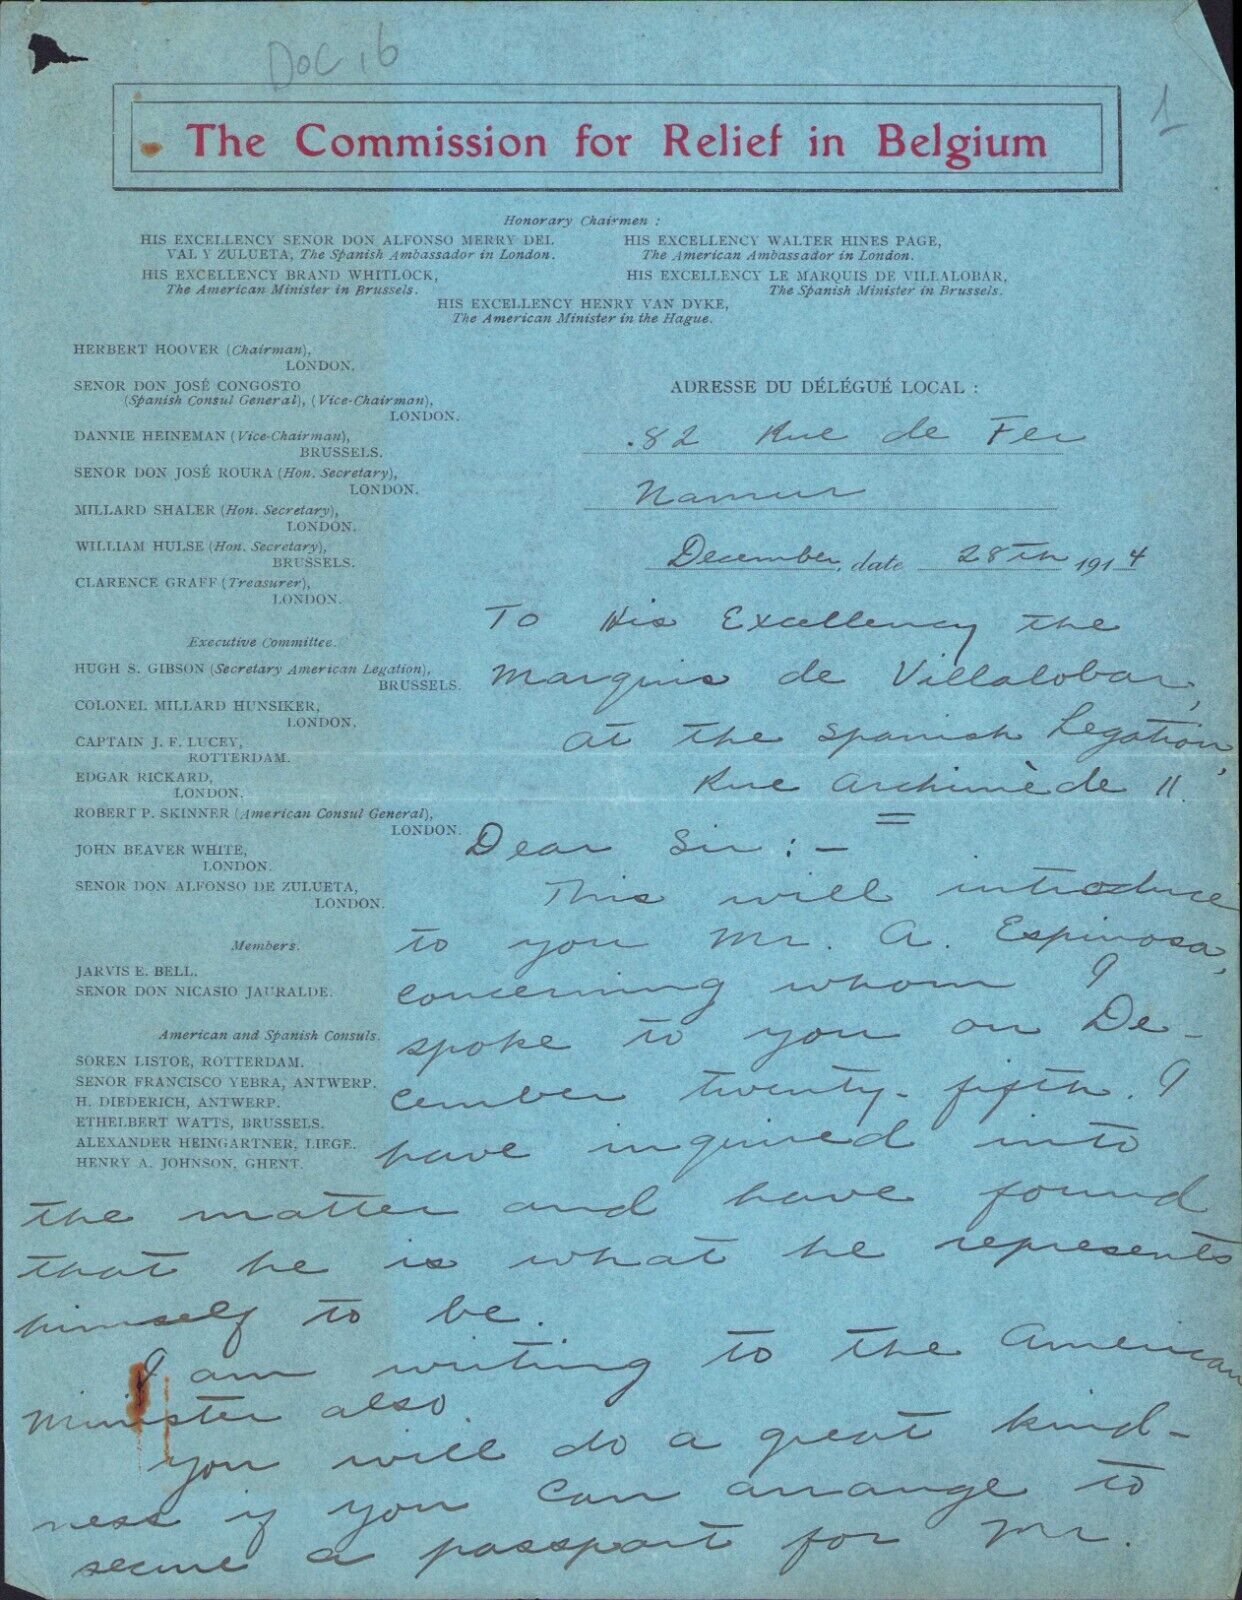 DOC 16
1
The Commission for Relief in Belgium
Honorary Chairmen :
HIS EXCELLENCY SENOR DON ALFONSO MERRY DEL
VAL Y ZULUETA, The Spanish Ambassador in London.
HIS EXCELLENCY WALTER HINES PAGE,
The American Ambassador in London.
HIS EXCELLENCY BRAND WHITLOCK,
The American Minister in Brussels.
HIS EXCELLENCY LE MARQUIS DE VILLALOBAR,
The Spanish Minister in Brussels.
HIS EXCELLENCY HENRY VAN DYKE,
The American Minister in the Hague.
HERBERT HOOVER (Chairman),
LONDON.
SENOR DON JOSÉ CONGOSTO
(Spanish Consul General), (Vice-Chairman),
LONDON.
DANNIE HEINEMAN (Vice-Chairman),
BRUSSELS.
SENOR DON JOSÉ ROURA (Hon. Secretary),
LONDON.
MILLARD SHALER (Hon. Secretary),
LONDON.
WILLIAM HULSE (Hon. Secretary),
BRUSSELS.
CLARENCE GRAFF (Treasurer),
LONDON.
Executive Committee.
HUGH S. GIBSON (Secretary American Legation),
BRUSSELS.
COLONEL MILLARD HUNSIKER,
LONDON.
CAPTAIN J. F. LUCEY,
ROTTERDAM.
EDGAR RICKARD,
LONDON.
ROBERT P. SKINNER (American Consul General),
LONDON.
JOHN BEAVER WHITE,
LONDON.
SENOR DON ALFONSO DE ZULUETA,
LONDON.
Members.
JARVIS E. BELL.
SENOR DON NICASIO JAURALDE.
American and Spanish Consuls.
SOREN LISTOE, ROTTERDAM.
SENOR FRANCISCO YEBRA, ANTWERP.
H. DIEDERICH, ANTWERP.
ETHELBERT WATTS, BRUSSELS.
ALEXANDER HEINGARTNER, LIEGE.
HENRY A. JOHNSON, GHENT.
ADRESSE DU DÉLÉGUÉ LOCAL :
.82 Rue de Fer
Namur
December, date 28th 1914
To His Excellency the
Marquis de Villalobar,
at the Spanish Legation,
Rue Archimède 11.
Dear Sir : –
This will introduce
to you Mr. A. Espinosa,
concerning whom I
spoke to you on De-
cember twenty-fifth. I
have inquired into
the matter and have found
that he is what he represents
himself to be.
I am writing to the American
Minister also.
You will do a great kind-
ness if you can arrange to
secure a passport for Mr.